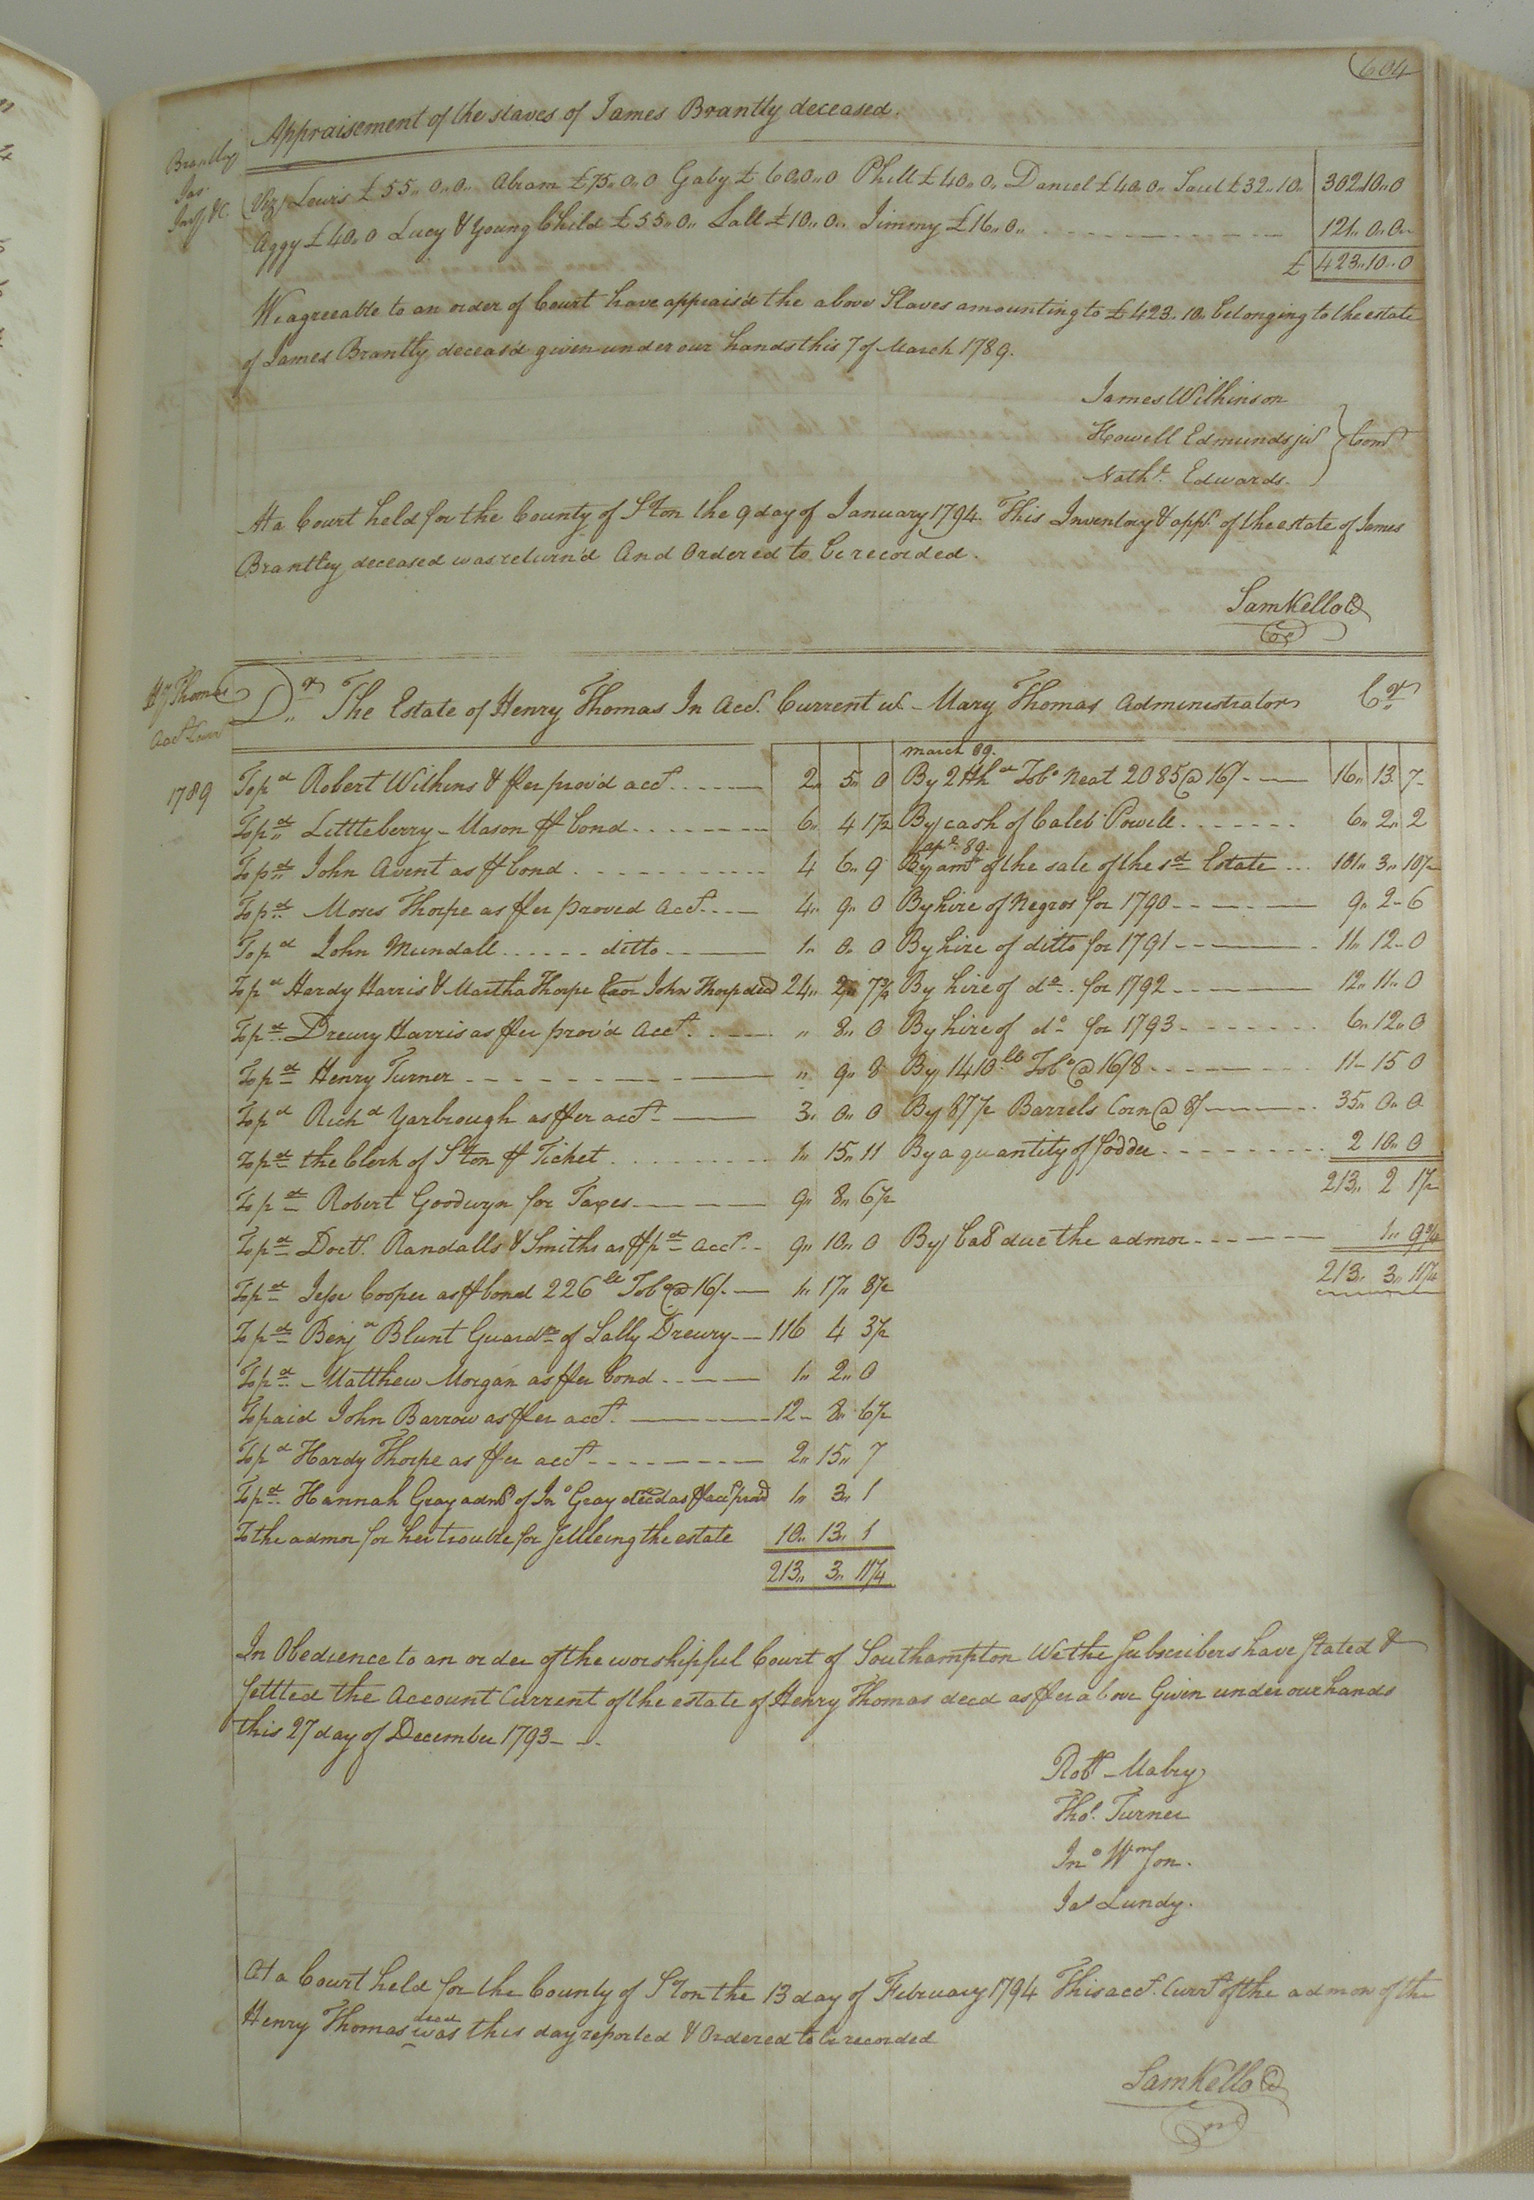 604
Appraisement of the slaves of James Brantly deceased.
Brantley
Jas.
Inv.y &C.
Viz) Lewis £55,,0,,0,, Abram £75,,0,,0 Gaby £60,,0,,0 Phill £40,,0,, Daniel £40,,0,, Saul £32,,10,, 302,,10,,0
Aggy £40,,0 Lucy & Young Child £55,,0,, Sall £10,,0,, Jimmy £16,,0,, 121,,0,,0,,
£ 423,,10,,0
We agreeable to an order of Court have apprais'd the above Slaves amounting to £423,,10,, belonging to the estate
of James Brantly deceas'd given under our hands this 7 of March 1789.
James Wilkinson
Howell Edmunds junr } Comrs
Nathl. Edwards.
At a Court held for the County of S'ton the 9 day of January 1794. This Inventory & appt. of the estate of James
Brantley deceased was return'd And Ordered to be recorded.
Sam Kello CC
Hy Thomas
Acct Curr
Dr. The Estate of Henry Thomas In Acct. Current wt. Mary Thomas Administrator Cr.
March 89.
1789 To pd Robert Wilkins & per prov'd acct. 2,, 5,, 0 By 2 Hhds Tobo Neat 2085 @ 16/- 16,, 13 7
To pd Littleberry Mason p bond 6,, 4 1½ By cash of Caleb Powell 6,, 2,, 2
apl. 89.
To pd John Avent as p bond 4 6,, 9 By amt of the sale of the sd Estate 101,, 3,, 10½
To pd Moses Thorpe as per proved Acct. 4,, 9,, 0 By hire of Negros for 1790 9,, 2 6
To pd John Mundall ditto 1,, 0,, 0 By hire of ditto for 1791 11,, 12 0
To pd Hardy Harris & Martha Thorpe Exor John Thorp decd 24,, 2,, 7¾ By hire of do. for 1792 12,, 11,, 0
To pd Drewry Harris as per prov'd Acct. ,, 8,, 0 By hire of do for 1793 6,, 12,, 0
To pd Henry Turner ,, 9,, 8 By 1410 lb Tobo @ 16/8 11 15 0
To pd Richd Yarbrough as per acct 3,, 0,, 0 By 87½ Barrels Corn @ 8/ 35,, 0,, 0
To pd the Clerk of S'ton p Ticket 1,, 15,, 11 By a quantity of fodder 2 10,, 0
213,, 2 1½
To pd Robert Goodwyn for Taxes 9,, 8,, 6½
To pd Doctr. Randalls & Smiths as p pd acct. 9,, 10,, 0 By Bal due the admor 1,, 9¾
213,, 3,, 11¼
To pd Jesse Cooper as p bond 226 lb Tobo @ 16/- 1,, 17,, 8½
To pd Benja Blunt Guardn of Sally Drewry 116 4 3½
To pd Matthew Morgan as per bond 1,, 2,, 0
To paid John Barrow as per acct. 12 8,, 6½
To pd Hardy Thorpe as per acct 2,, 15,, 7
To pd Hannah Gray admr of Jno Gray decd as p acct prov'd 1,, 3,, 1
To the admor for her trouble for settleing the estate 10,, 13,, 1
213,, 3,, 11¼
In Obedience to an order of the worshipful Court of Southampton We the Subscribers have Stated &
Settled the Account Current of the estate of Henry Thomas decd as per above Given under our hands
this 27 day of December 1793
Robt Mabry
Thos. Turner
Jno Wmson.
Jas Lundy.
At a Court held for the County of S'ton the 13 day of February 1794 This acct. Currt of the admon of the
decd
Henry Thomas was this day reported & Ordered to be recorded
Sam Kello CC